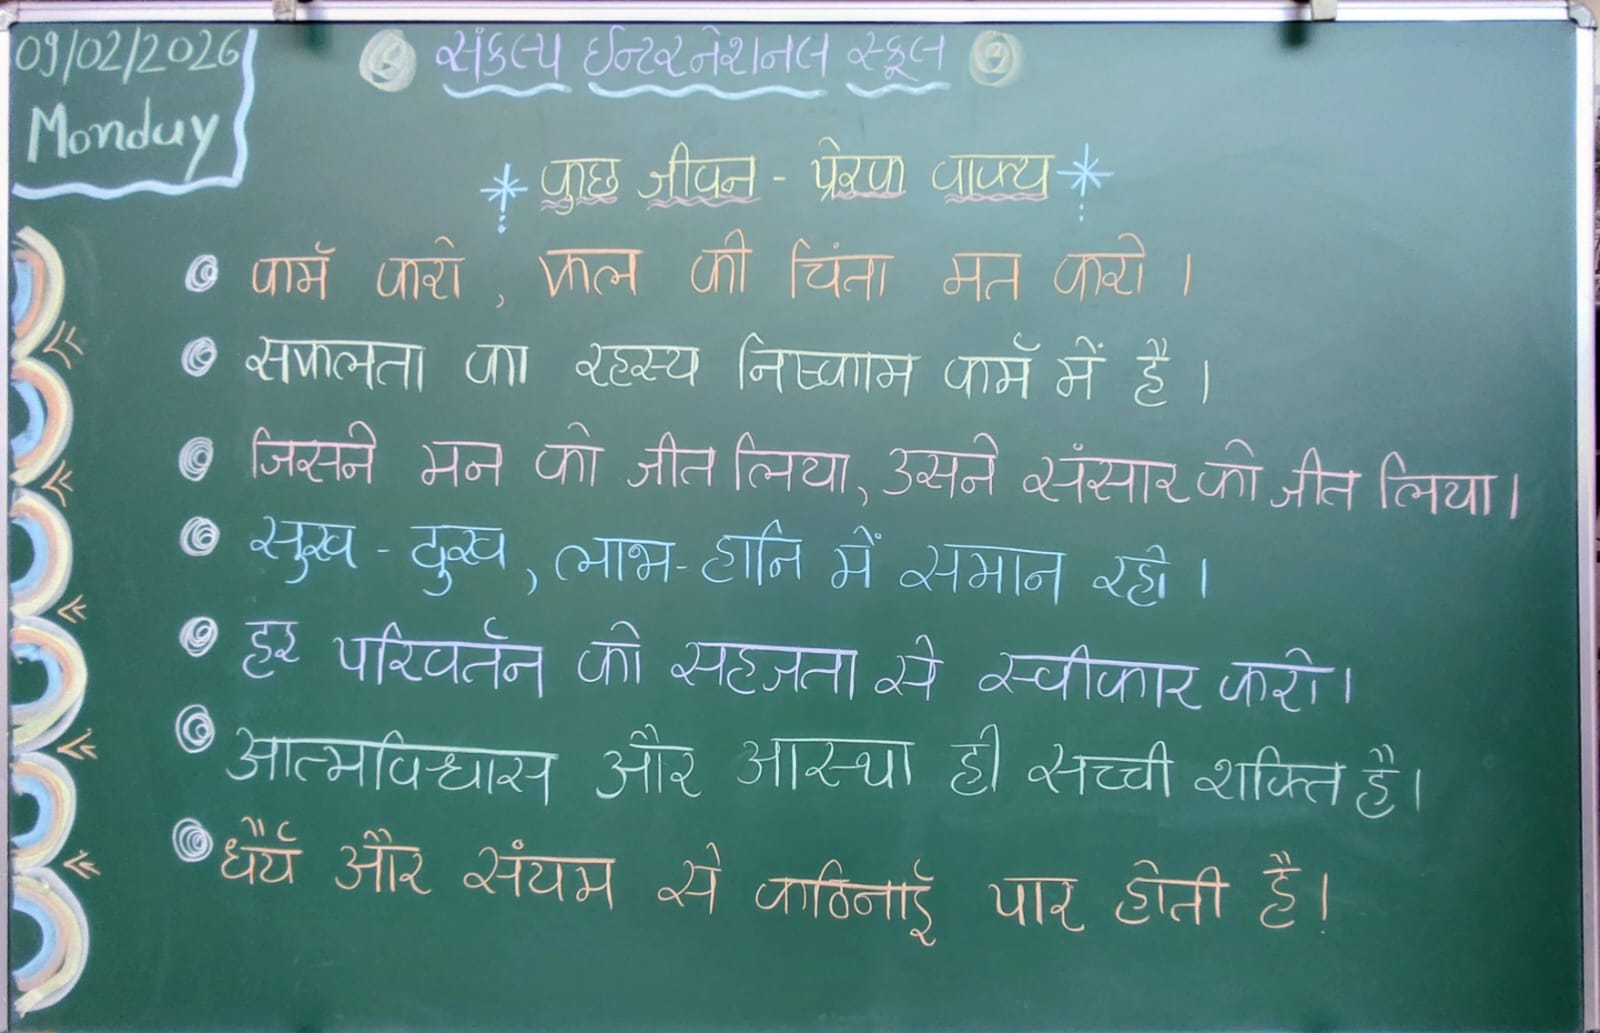 09/02/2026
Monday
संकल्प ईन्टरनेशनल स्कूल
कुछ जीवन - प्रेरक वाक्य
कर्म करो, फल की चिंता मत करो।
सफलता का रहस्य निष्काम कर्म में है।
जिसने मन को जीत लिया, उसने संसार को जीत लिया।
सुख - दुख, लाभ - हानि में समान रहो।
हर परिवर्तन को सहजता से स्वीकार करो।
आत्मविश्वास और आस्था ही सच्ची शक्ति है।
धैर्य और संयम से कठिनाई पार होती है।